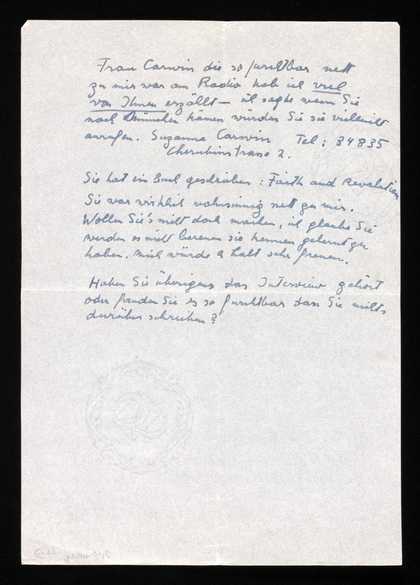 Frau Carwin die so furchtbar nett
zu mir war am Radio hab ich viel
von Ihnen erzählt – ich sagte wenn Sie
nach München kämen würden Sie sie vielleicht
anrufen. Suzanne Carwin Tel: 34835
Cherubinstrasse 2.
Sie hat ein Buch geschrieben: Faith and Revolution
Sie war wirklich wahnsinnig nett zu mir.
Wollen Sie's nicht doch machen, ich glaube Sie
werden es nicht bereuen sie kennen gelernt zu
haben. Mich würde es halt sehr freuen.
Haben Sie übrigens das Interview gehört
oder fanden Sie es so furchtbar dass Sie nichts
darüber schreiben?